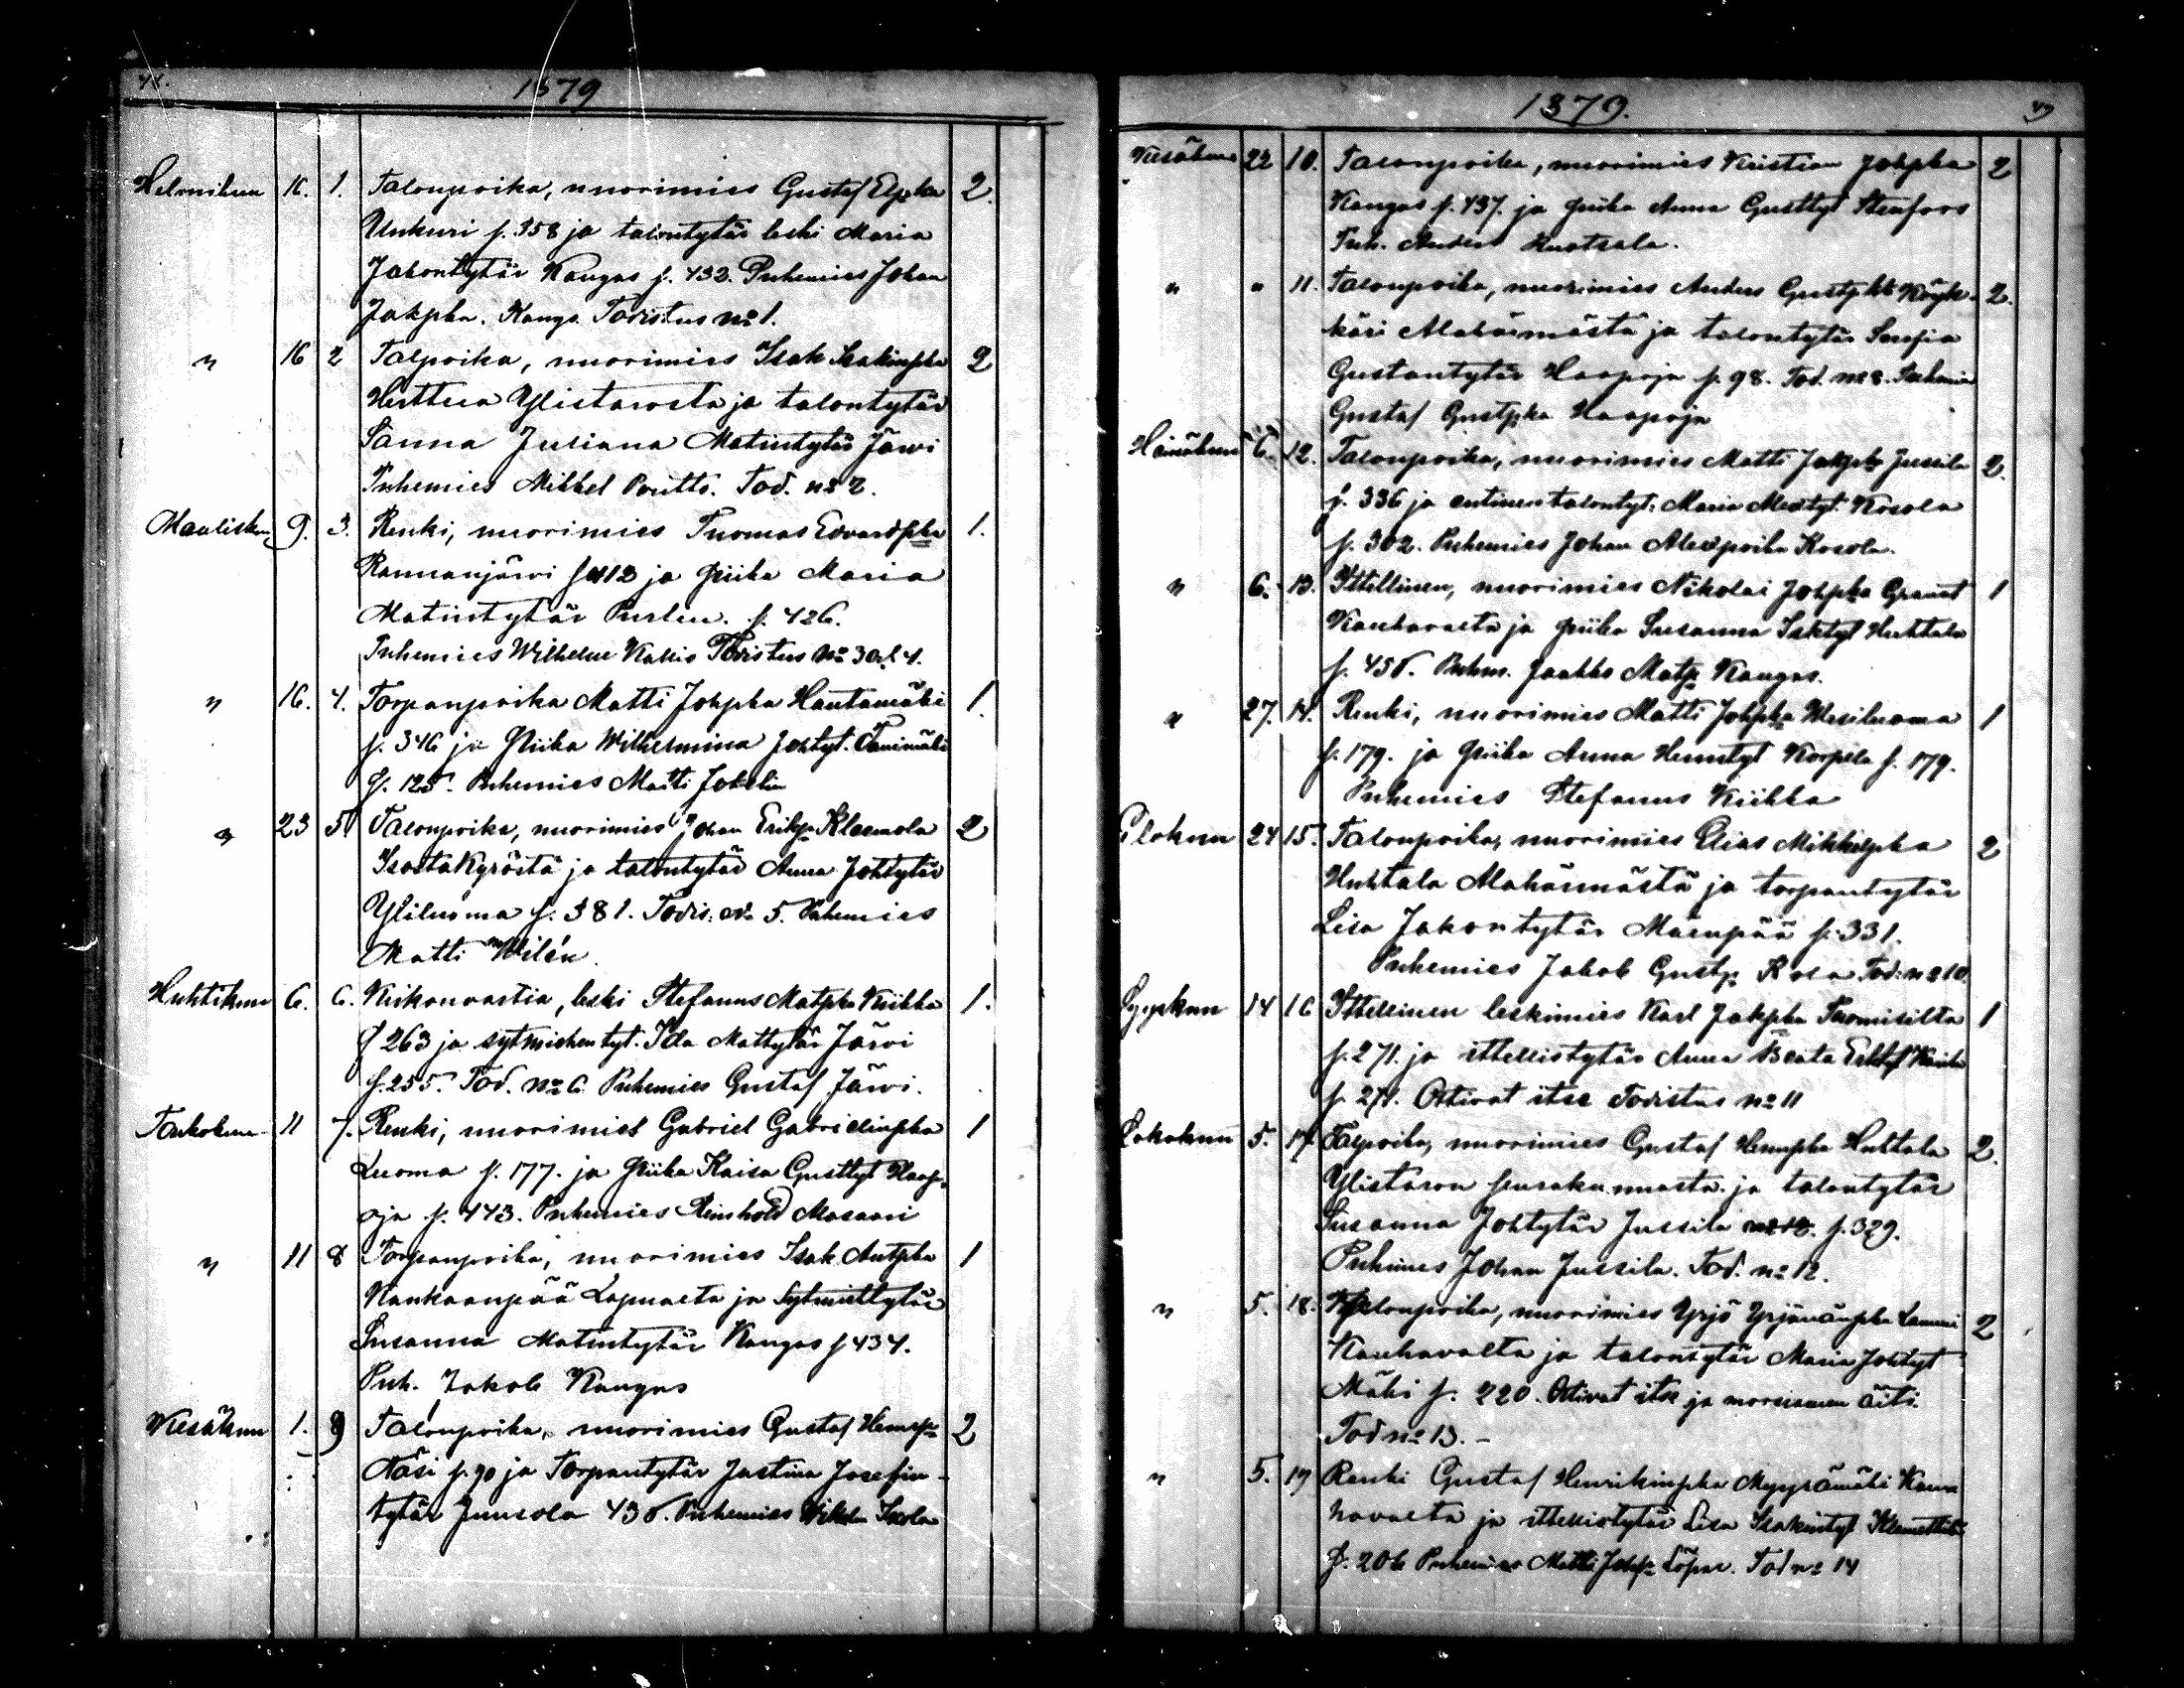 1879
Helmikuu 16. 1. Talonpoika, nuorimies Gustaf Elpka 2.
Unkuri p. 358 ja talontytär leski Maria
Jakontytär Kangas p. 432. Puhemies Johan
Jakpka. Kangs. Todistus No 1.
" 16 2 Talpoika, nuorimies Isak Isakinpka 2
Herttua Ylistarosta ja talontytär
Sanna Juliana Matintytär Järwi
Puhemies Mikkel Poutto. Tod. no 2.
Maalisku 9. 3. Renki, nuorimies Tuomas Edvardpka 1.
Rannanjärwi p 412 ja piika Maria
Matintytär p. 426.
Puhemies Wilhelm Kallio Todistus No 3 4.
" 16. 4. Torpanpoika Matti Johpka Hautamäki 1.
p. 346 ja Piika Wilhelmina Johtyt.
p. 125. Puhemies Matti
" 23 5 Talonpoika, nuorimies Johan Erikp Kleemola 2
Isostakyröstä ja talontytär Anna Johtytär
Yliluoma p. 381. Todis. No 5. Puhemies
Matti Wilén.
Huhtikuu 6. 6. Kirkonvartia, leski Stefanus Matpka Kiikka 1.
p 263 ja sytmiehentyt. Ida Mattytär Järvi
p. 255. Tod. No 6 Puhemies Gustaf Järwi.
Toukokuu 11 7. Renki, nuorimies Gabriel Gabrielinpka 1
Luoma p. 177. ja Piika Kaisa Gusttyt Haap-
oja p. 443. Puhemies Reinhold Masaari
" 11 8 Torpanpoika, nuorimies Isak Antpka 1
Kankaanpää Lapualta ja Sytmiettytär
Susanna Matintytär Kangas p 434.
Puh. Jakob Kangas
Kesäkuu 1. 9 Talonpoika, nuorimies Gustaf Henrp 2
Näsi p. 90 ja Torpantytär Justina Josefin-
tytär Juusola Puhemies Isola
1879. 49
Kesäkuu 22 10. Talonpoika, nuorimies Kristian Johpka 2
Kangas p. 437. ja piika Anna Gusttyt Stenfors
Puh. Anders Knotsala.
" " 11. Talonpoika, nuorimies Anders Gustpka Köyk- 2.
käri Alahärmästä ja talontytär Serafia
Gustantytär Haapoja p. 98. Tod. no 8. Puhemies
Gustaf Gustpka Haapoja
Heinäkuu 6. 12. Talonpoika, nuorimies Matti Jakpka Jussila 2.
p. 336 ja entinen talontyt. Maria Alextyt Kosola
p. 302. Puhemies Johan Alexpoika Kosola.
" 6. 13. Ittellinen, nuorimies Nikolai Johpka Granat 1
Kauhavalta ja piika Susanna Isaktyt Huhtala
p. 458. Puhm. Jaakko Matp Kangas.
" 27. 14. Renki, nuorimies Matti Johpka Wesiluoma 1
p. 179. ja piika Anna Henrityt Korpela p. 179.
Puhemies Stefanus Kiikka
Elokuu 24 15. Talonpoika, nuorimies Elias Mikkelpka 2
Huhtala Alahärmästä ja torpantytär
Lisa Jakontytär Mäenpää p. 331.
Puhemies Jakob Gustp. Tod. no 10
Syyskuu 14 16 Ittellinen leskimies Karl Jakpka Tuomisilta 1
p. 271. ja ittellistytär Anna Beata
p. 271. Ottivat itse Todistus no 11
Lokakuu 5. 17. Talpoika, nuorimies Gustaf Henripka Huhtala 2.
Ylistaron seurakunnasta ja talontytär
Susanna Johtytär Jussila p. 329.
Puhmies Johan Jussila. Tod. no 12.
" 5. 18. Talonpoika, nuorimies Yrjö Yrjänänpka Lammi 2
Kauhavalta ja talontytär Maria Johtyt
Mäki p. 220. Ottivat itse ja morsiamen äiti.
Tod no 13. -
" 5. 19 Renki Gustaf Henrikinpka Myyrämäki Kau
havalta ja ittellistytär Lisa Isakintyt Klemettilä
p. 206 Puhemies Matti Löpar. Tod no 14